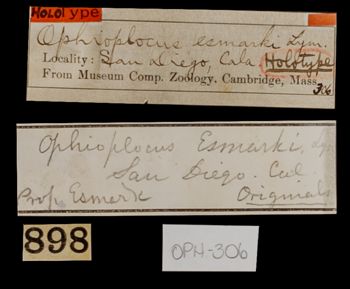 HOLOType
Ophioplocus esmarki Lym.
Locality: San Diego, Cala Holotype
From Museum Comp. Zoology, Cambridge, Mass.
306
Ophioplocus Esmarki, Ly
San Diego. Cal.
Prof. Esmark Originials
898
OPH-306